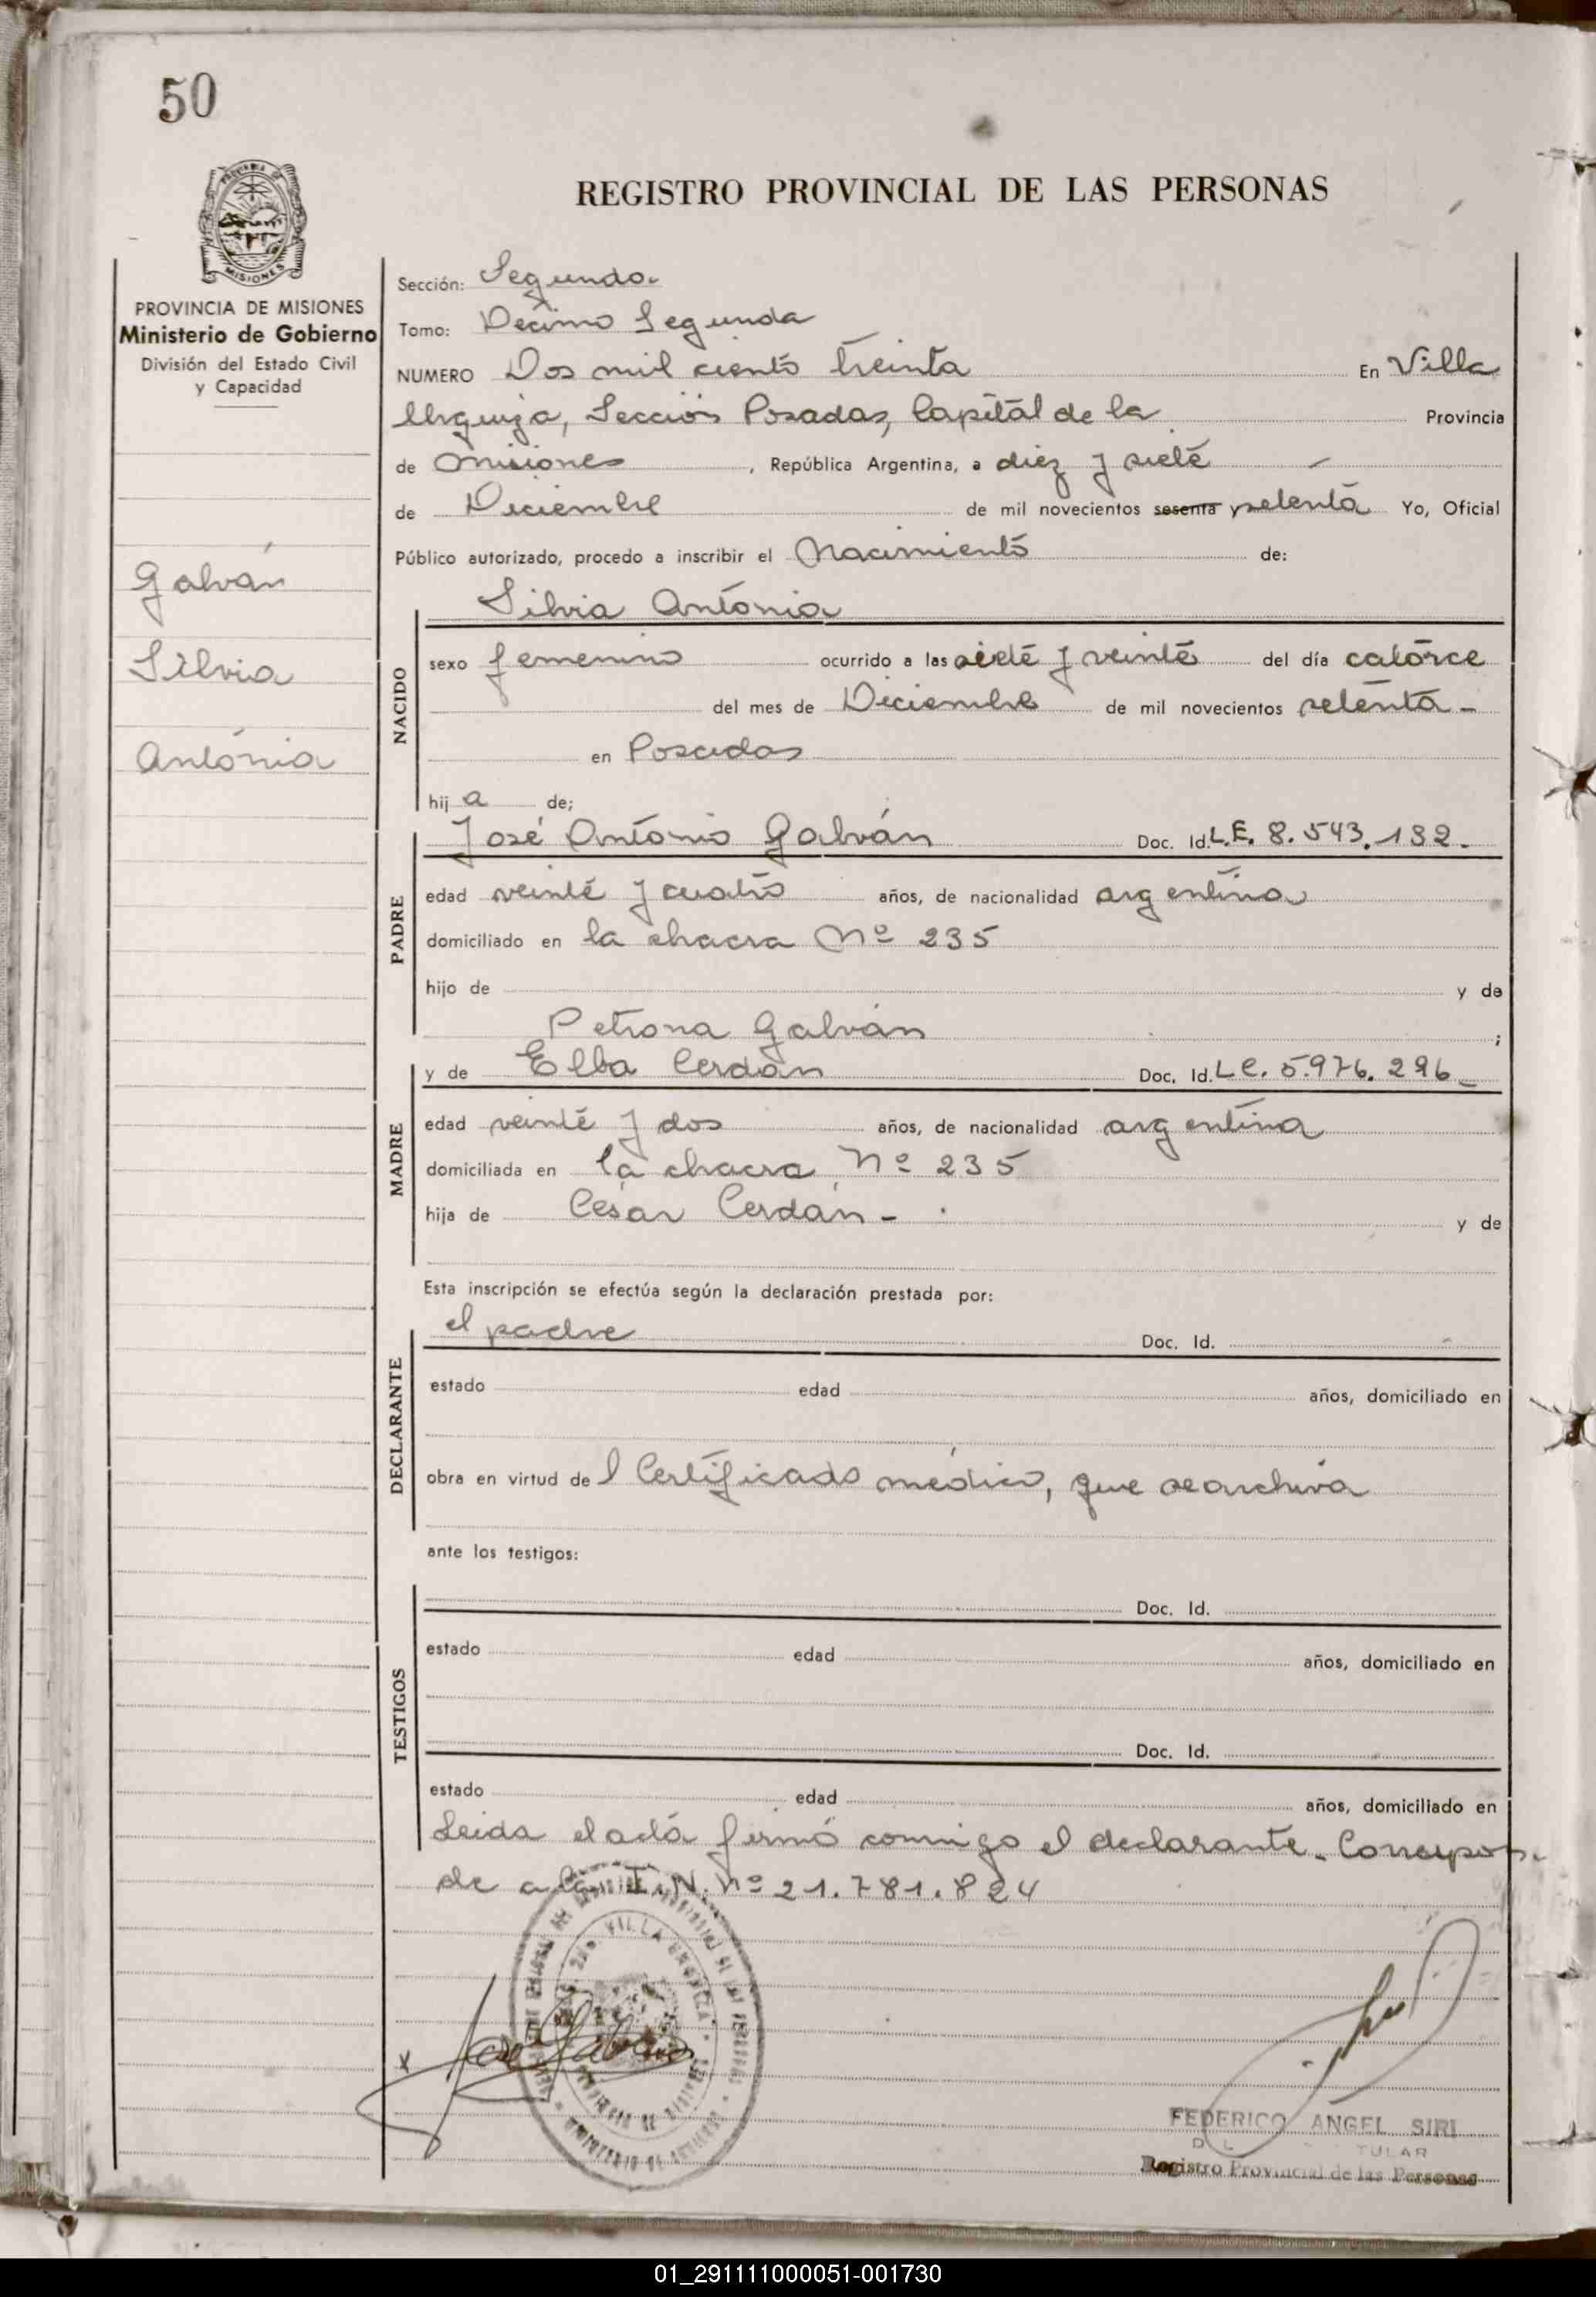 50
PROVINCIA DE MISIONES
Ministerio de Gobierno
División del Estado Civil
y Capacidad
Galván
Silvia
Antónia
REGISTRO PROVINCIAL DE LAS PERSONAS
Sección: Segundo.
Tomo: Décimo Segunda
NUMERO Dos mil ciento treinta En Villa
Urquiza, Sección Posadas, Capital de la Provincia
de Misiones, República Argentina, a diez y siete
de Diciembre de mil novecientos sesenta y setenta Yo, Oficial
Público autorizado, procedo a inscribir el Nacimiento de:
Silvia Antonia
NACIDO
sexo femenino ocurrido a las siete y veinte del día catorce
del mes de Diciembre de mil novecientos setenta -
en Posadas
hij a de;
PADRE
José Antonio Galván Doc. Id. L.E. 8.543.132.
edad veinte y cuatro años, de nacionalidad argentina
domiciliado en la chacra Nº 235
hijo de y de
Petrona Galván ;
MADRE
y de Elba Cerdán Doc. Id. L.C. 5.976.296_
edad veinte y dos años, de nacionalidad argentina
domiciliada en la chacra Nº 235
hija de César Cerdán - . y de
Esta inscripción se efectúa según la declaración prestada por:
DECLARANTE
el padre Doc. Id.
estado edad años, domiciliado en
obra en virtud de l Certificado médico, que se archiva
ante los testigos:
TESTIGOS
Doc. Id.
estado edad años, domiciliado en
Doc. Id.
estado edad años, domiciliado en
Leida el acta firmó conmigo el declarante. Correspon-
de a la I.N. Nº 21.781.824
VILLA URQUIZA
x José Galván
FEDERICO ANGEL SIRI
TULAR
Registro Provincial de las Personas
01_291111000051-001730